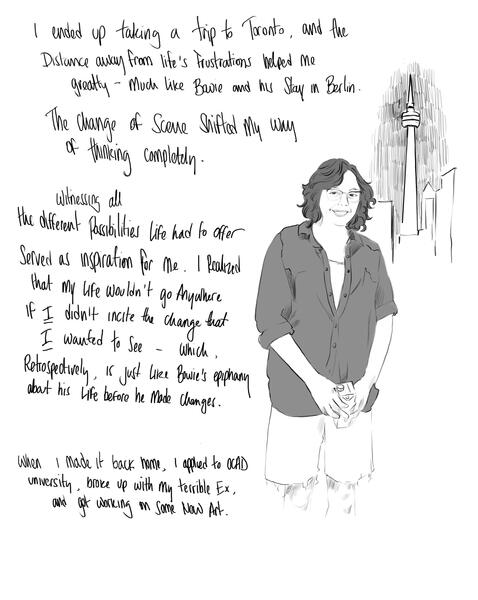 I ended up taking a trip to Toronto, and the
Distance away from life's frustrations helped me
greatly - Much like Bowie and his Stay in Berlin.
The change of Scene Shifted My way
of thinking completely.
Witnessing all
the different possibilities Life had to offer
Served as inspiration for me. I Realized
that my life wouldn't go Anywhere
if I didn't incite the change that
I wanted to See - which,
Retrospectively, is just Like Bowie's epiphany
about his Life before he Made changes.
When I made it back home, I applied to OCAD
university, broke up with my terrible Ex,
and got working on some New Art.